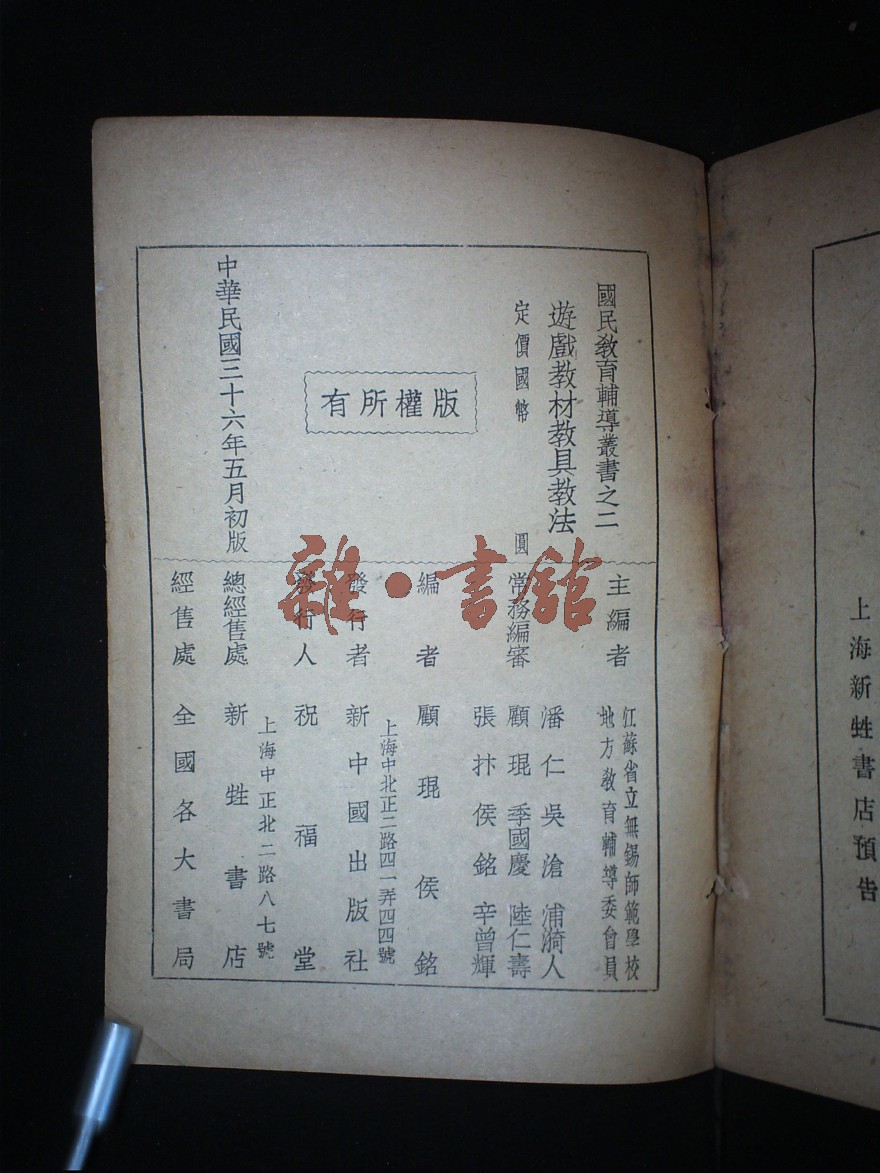 國民教育輔導叢書之二
遊戲教材教具教法
定價國幣　　圓
版權所有
中華民國三十六年五月初版
主編者　江蘇省立無錫師範學校
地方教育輔導委會員
常務編審　潘仁　吳滄　浦漪人
顧琨　季國慶　陸仁壽
張抃　侯銘　辛曾輝
編者　顧琨　侯銘
發行者　新中國出版社
上海中北正二路四一弄四四號
發行人　祝福堂
總經售處　新甡書店
上海中正北二路八七號
經售處　全國各大書局
雜·書館
上海新甡書店預告